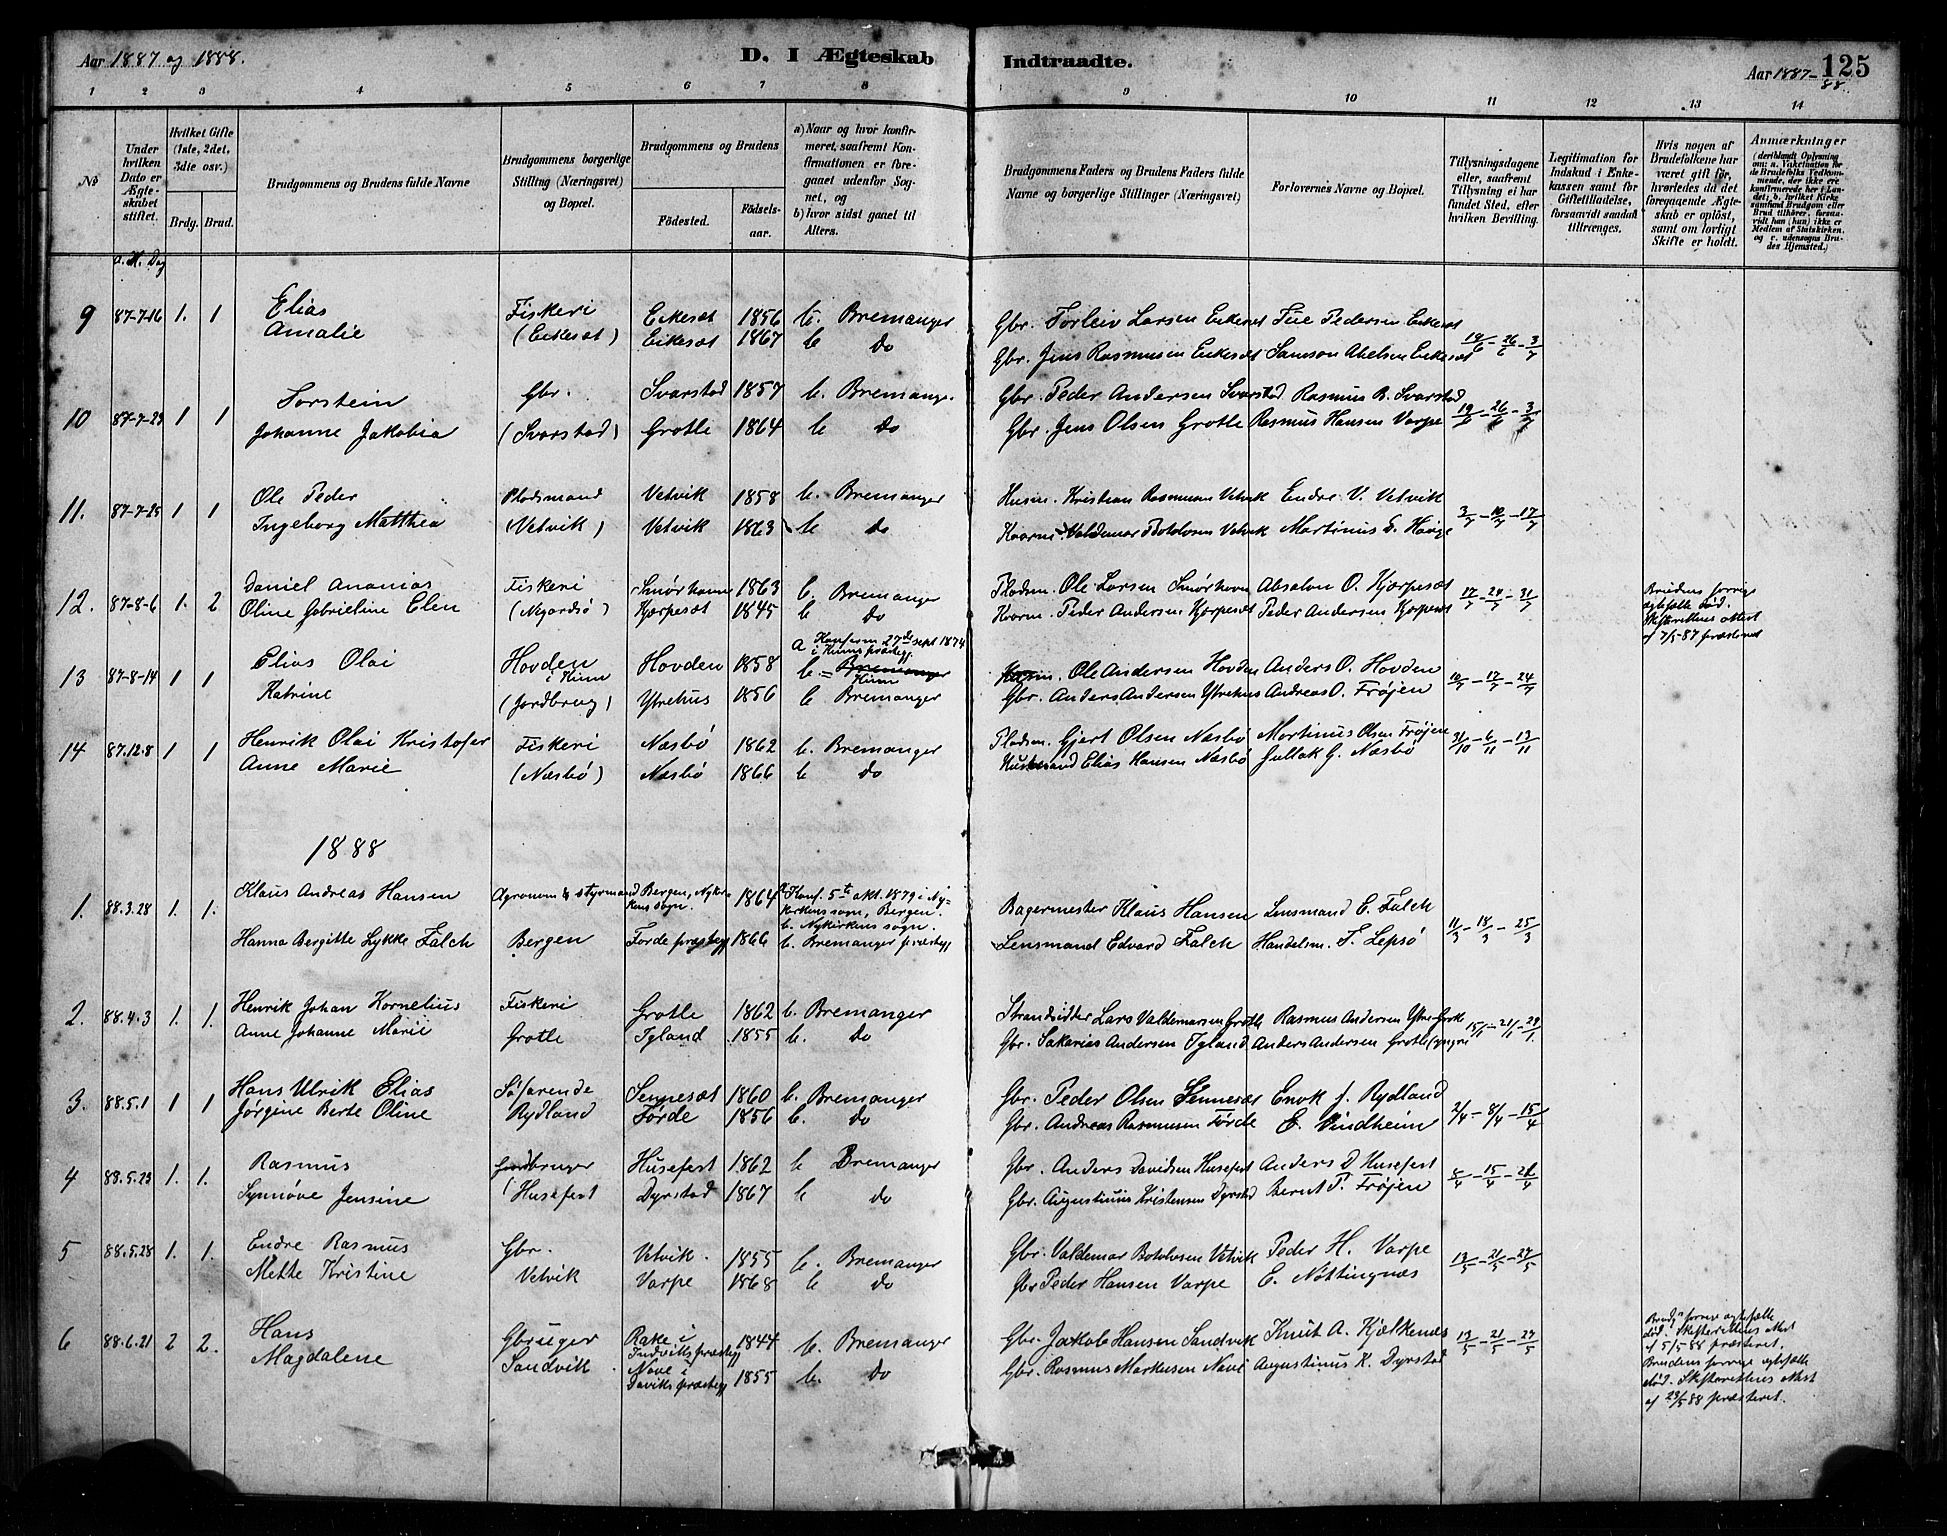 Aar 1887 og 1888.
D. I Ægteskab Indtraadte.
Aar 1887-88. 125
1 2 3 4 5 6 7 8 9 10 11 12 13 14
No
Under hvilken Dato er Ægteskabet stiftet.
Hvilket Gifte (1ste, 2det, 3die osv.)
Brdg. Brud.
Brudgommens og Brudens fulde Navne
Brudgommens borgerlige Stilling (Næringsvei) og Bopæl.
Brudgommens og Brudens
Födested.
Födselsaar.
a) Naar og hvor konfirmeret, saafremt Konfirmationen er foregaaet udenfor Sognet, og
b) hvor sidst gaaet til Alters.
Brudgommens Faders og Brudens Faders fulde Navne og borgerlige Stillinger (Næringsvei)
Forlovernes Navne og Bopæl.
Tillysningsdagene eller, saafremt Tillysning ei har fundet Sted, efter hvilken Bevilling.
Legitimation for Indskud i Enkekassen samt for Giftetilladelse, forsaavidt saadant tiltrænges.
Hvis nogen af Brudefolkene har været gift för, hvorledes da det foregaaende Ægteskab er oplöst, samt om lovligt Skifte er holdt.
Anmærkninger (deriblandt Oplysning om: a. Vakcination for de Brudefolks Vedkommende, der ikke ere konfirmerede her i Landet; b. hvilket Kirkesamfund Brudgom eller Brud tilhörer, forsaavidt han (hun) ikke er Medlem af Statskirken, og c. udensogns Brudes Hjemsted.)
a. M. Dag
9 87-7-16 1. 1 Elias Fiskeri Eikesæt 1856 b. Bremanger Gbr. Torleiv Larsen Eikesæt Tue Pedersen Eikesæt 19/6 - 26/6 - 3/7
Amalie (Eikesæt) Eikesæt 1867 b do Gbr. Jens Rasmusen Eikesæt Samson Abelsen Eikesæt
10 87-7-23 1 1 Torstein Gbr. Svarstad 1857 b. Bremanger. Gbr. Peder Andersen Svarstad Rasmus R. Svarstad 19/6 - 26/6 - 3/7
Johanne Jakobia (Svarstad) Grotle 1864 b do Gbr. Jens Olsen Grotle Rasmus Hansen Varpe
11. 87-7-25 1 1 Ole Peder Pladsmand Vetvik 1858 b. Bremanger Husm. Kristian Rasmusen Vetvik Endre V. Vetvik 3/7 - 10/7 - 17/7
Ingeborg Matthea (Vetvik) Vetvik 1863 b do Valdemar Botolvsen Vetvik Martinus
12. 87-8-6 1. 2 Daniel Ananias Fiskeri Smørhavn 1863 b. Bremanger Pladsm. Ole Larsen Smørhavn Absalon O. Kjerpesæt 17/7 - 24/7 - 31/7 Brudens forrige ægtefælle død. Skifterettens attest af 7/5-87 præsteret
Oline Gabrieline Elen Kjerpesæt 1845 b do Peder Andersen Kjerpesæt Peder Andersen Kjerpesæt
13 87-8-14 1 1 Elias Olai Hovden i Kinn Hovden 1858 a Konferm 27de sept 1874 i Kinns præstegj. b = Bremanger Kinn Ole Andersen Hovden Anders O. Hovden 10/7 - 17/7 - 24/7
Katrine (Jordbrug) Ytrehus 1856 b Bremanger Gbr. Anders Andersen Ytrehus Andreas O. Frøjen
14 87.12.8 1 1 Henrik Olai Kristofer Fiskeri Næsbö 1862 b. Bremanger Pladsm. Gjert Olsen Næsbö Martinus Olsen Frøjen 31/10 - 6/11 - 13/11
Anne Marie (Næsbö) Næsbö 1866 b do Husmand Elias Hansen Næsbö Gullak G. Næsbö
1888
1. 88.3.28 1. 1. Klaus Andreas Hansen Agronom & styrmand Bergen, Nykirkens sogn. 1864 a Konf. 5te okt. 1879 i Nykirkens sogn, Bergen. b. Nykirkens sogn. Bagermester Klaus Hansen Lensmand E. Falch 11/3 - 18/3 - 25/3
Hanna Bergitte Lykke Falch Bergen Førde præstegj 1866 b. Bremanger præstegj Lensmand Edvard Falch Handelsm. F. Lepsö
2. 88.4.3 1. 1. Henrik Johan Kornelius Fiskeri Grotle 1862 b. Bremanger Strandsidder Lars Valdemarsen Grotle Rasmus Andersen 15/1 - 21/1 - 29/1
Anne Johanne Marie Grotle Igland 1855 b. do Gbr. Sakarias Andersen Igland Anders Andersen Grotle (yngre
3. 88.5.1 1 1 Hans Ulrik Elias Søfarende Sennesæt 1860 b. Bremanger Gbr. Peder Olsen Sennesæt Enok J. Rydland 2/4 - 8/4 - 15/4
Jørgine Berte Oline Rydland Førde 1856 b. do Gbr. Andreas Rasmusen Førde E. Vindheim
4 88.5.23 1. 1. Rasmus Gaardbruger Husefest 1862 b Bremanger Gbr. Anders Davidsen Husefest Anders D Husefest 8/4 - 15/4 - 21/4
Synnøve Jensine (Husefest Dyrstad 1867 b do Gbr. Augustinus Kristensen Dyrstad Bernt P. Frøjen
5 88.5.28 1. 1. Endre Rasmus Gbr. Vetvik. 1855 b. Bremanger Gbr. Valdemar Botolvsen Vetvik Peder H. Varpe 13/5 - 21/5 - 27/5
Mette Kristine Vetvik Varpe 1868 b do Gbr Peder Hansen Varpe E. Nøttingnæs
6 88.6.21 2 2. Hans Gbruger Rake i Indviks præstegj 1844 b. Bremanger Gbr. Jakob Hansen Sandvik Knut A. Kjelkenæs 13/5 - 21/5 - 27/5 Brudg. forrige ægtefælle død. Skifterettens attest af 5/5 88 præsteret.
Magdalene Sandvik Nave i Daviks præstegj 1855 b. do Gbr. Rasmus Markusen Nave Augustinus K. Dyrstad Brudens forrige ægtefælle død. Skifterettens attest af 23/5 88 præsteret.